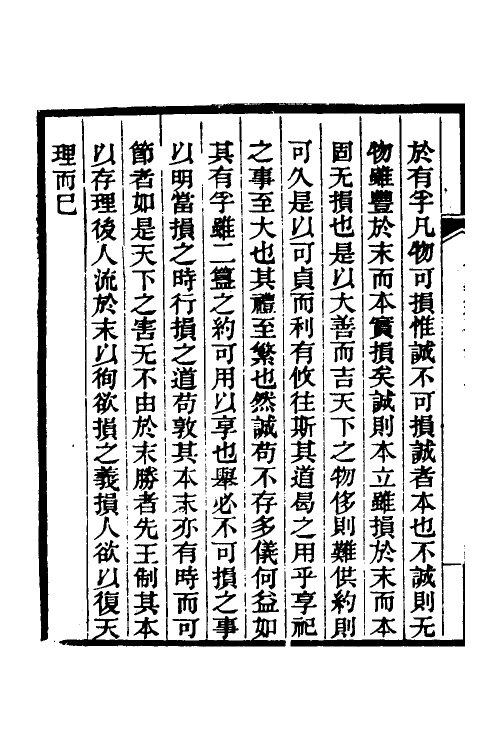 於有孚凡物可損惟誠不可損誠者本也不誠則无
物雖豐於末而本實損矣誠則本立雖損於末而本
固无損也是以大善而吉天下之物侈則難供約則
可久是以可貞而利有攸往斯其道曷之用乎享祀
之事至大也其禮至繁也然誠苟不存多儀何益如
其有孚雖二簋之約可用以享也舉必不可損之事
以明當損之時行損之道苟敦其本末亦有時而可
節者如是天下之害无不由於末勝者先王制其本
以存理後人流於末以徇欲損之義損人欲以復天
理而已